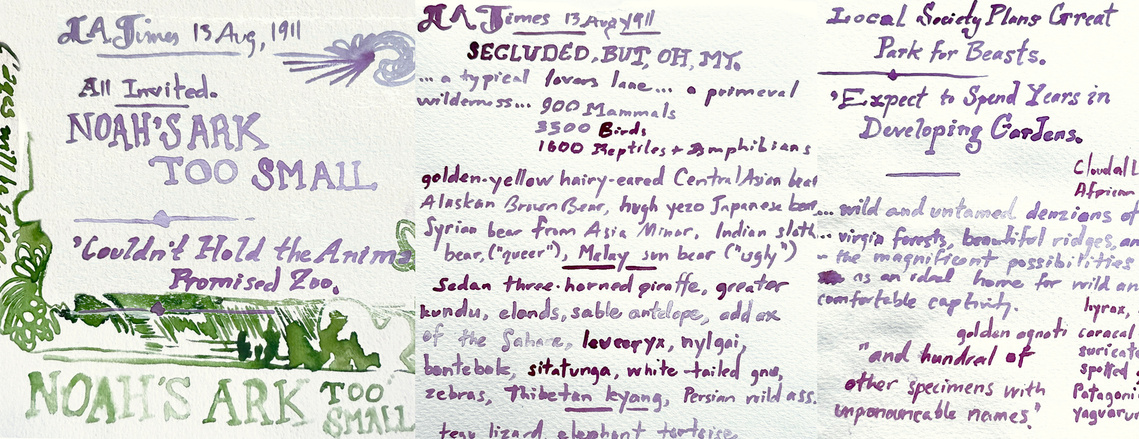 L.A. Times 13 Aug, 1911
All Invited.
NOAH'S ARK
TOO SMALL
'Couldn't Hold the Anima
Promised Zoo.
NOAH'S ARK TOO
SMALL
L.A. Times 13 Aug 1911
SECLUDED, BUT, OH, MY.
... a typical lovers lane... a primeval
wilderness... 900 Mammals
3500 Birds
1600 Reptiles + Amphibians
golden-yellow hairy-eared Central Asian bear
Alaskan Brown Bear, hugh yezo Japanese bear,
Syrian bear from Asia Minor, Indian sloth
bear, ("queer"), Malay sun bear ("ugly")
Sedan three-horned giraffe, greater
kundu, elands, sable antelope, addax
of the Sahare, leucoryx, nylgai,
bontebok, sitatunga, white-tailed gnu,
zebras, Thibetan kyang, Persian wild ass.
tegu lizard, elephant tortoise,
Local Society Plans Great
Park for Beasts.
'Expect to Spend Years in
Developing Gardens.
Clouded L
African
... wild and untamed denzions of
... virgin forests, beautiful ridges, an
- the magnificent possibilities
as an ideal home for wild an
comfortable captivity.
hyrax,
golden agouti caracal
"and hundral of suricate
spotted
other specimens with Patagoni
unpronouncable names." yaguarun